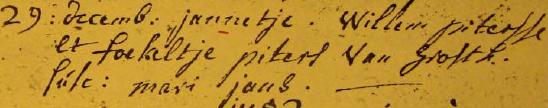 29: decemb: jannetje. Willem pitersse
et foekeltje piters Van Grosth.
sus: mari jans.